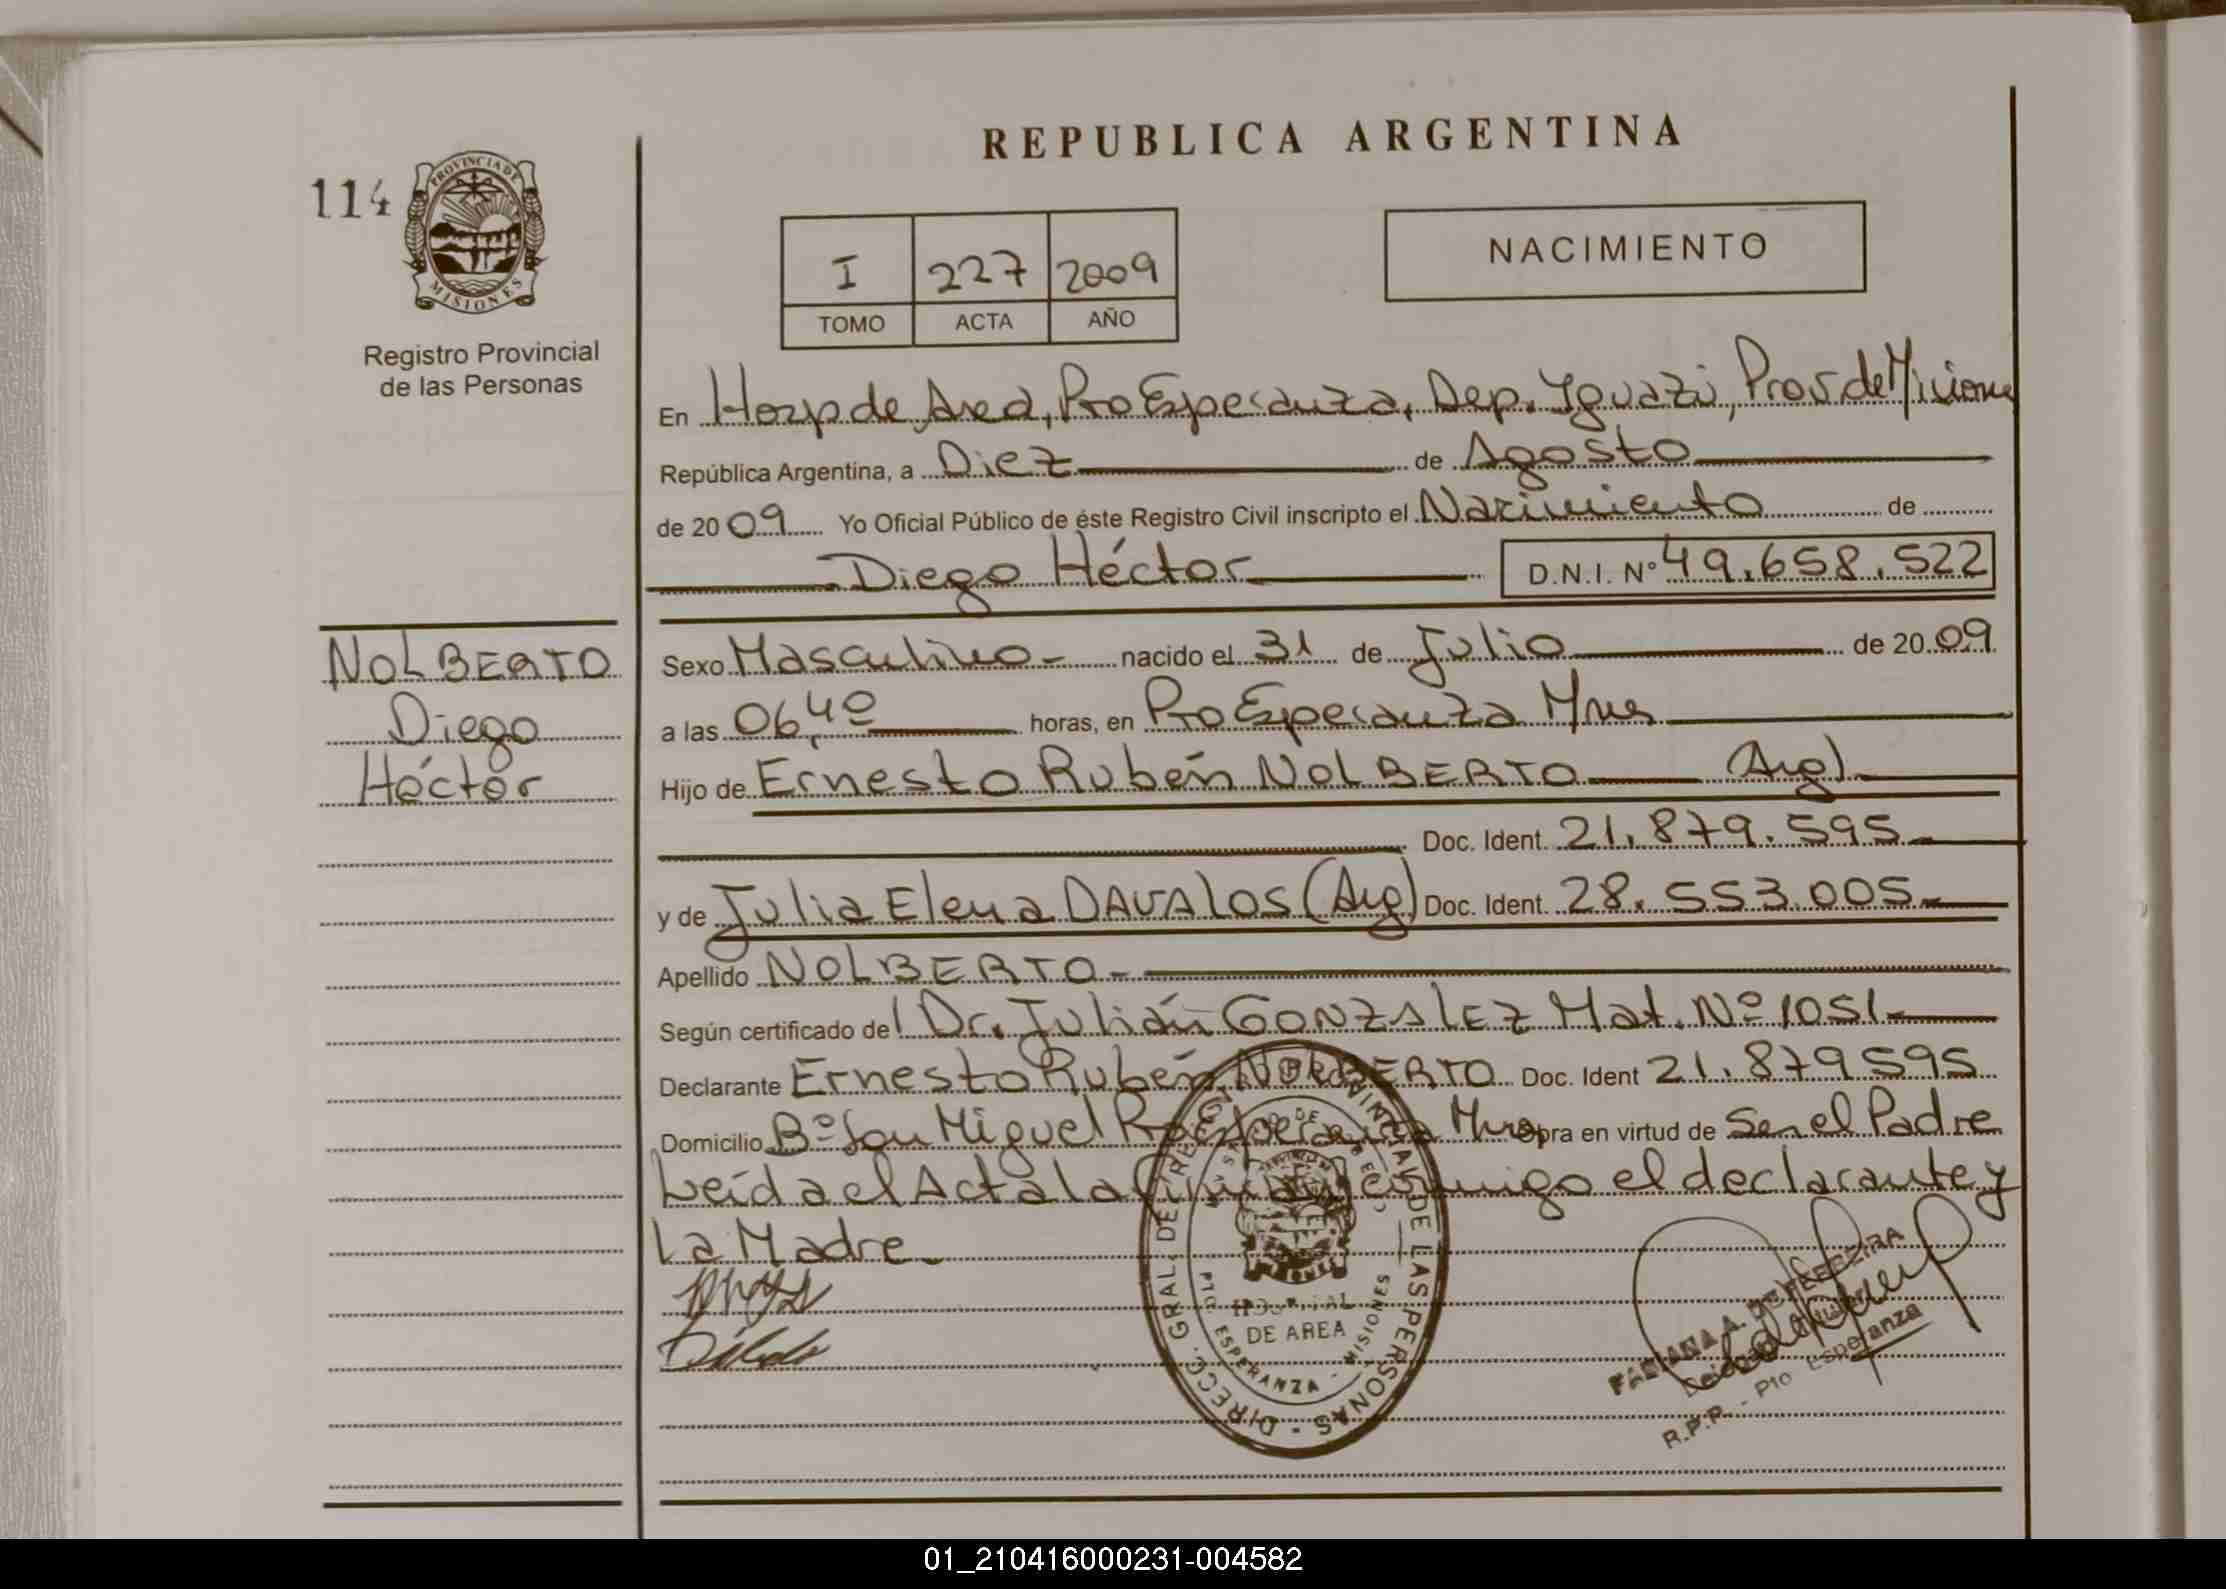 REPUBLICA ARGENTINA
114
PROVINCIA DE
MISIONES
Registro Provincial
de las Personas
I 227 2009
TOMO ACTA AÑO
NACIMIENTO
En Hosp de Area, Pto Esperanza, Dep. Iguazú, Prov de Misiones
República Argentina, a Diez de Agosto
de 2009 Yo Oficial Público de éste Registro Civil inscripto el Nacimiento de
Diego Héctor D.N.I. Nº 49.658.522
NOLBERTO
Diego
Héctor
Sexo Masculino - nacido el 31 de Julio de 2009
a las 06,40 horas, en Pto Esperanza Mnes
Hijo de Ernesto Rubén NOLBERTO (Arg)
Doc. Ident. 21.879.595
y de Julia Elena DAVALOS (Arg) Doc. Ident. 28.553.005
Apellido NOLBERTO
Según certificado de Dr. Julián GONZALEZ Mat. Nº 1051
Declarante Ernesto Rubén NOLBERTO Doc. Ident 21.879595
Domicilio Bº San Miguel Pto Esperanza Mnes Obra en virtud de Ser el Padre
Leída el Acta la conmigo el declarante y
La Madre
DIRECC. GRAL. DE PROVINCIAL DE LAS PERSONAS
HOSPITAL
DE AREA
PTO. ESPERANZA - MISIONES
FABIANA A. FERREIRA
R.P.P. - Pto Esperanza
01_210416000231-004582